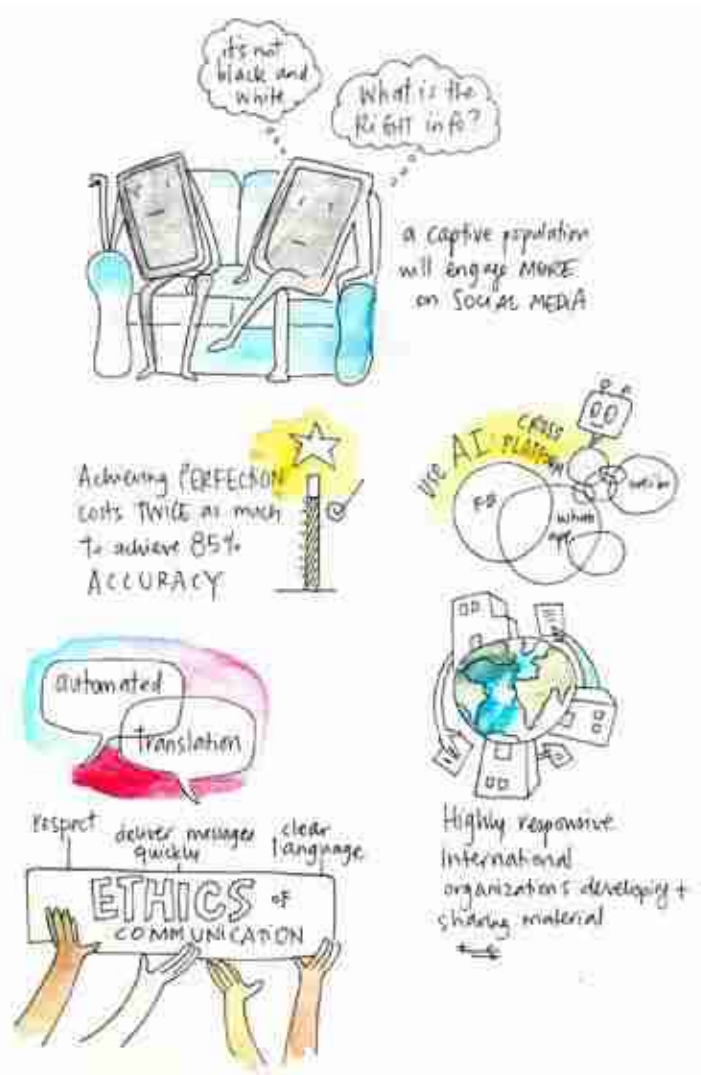 it's not
black and
white
What is the
RIGHT info?
a captive population
will engage MORE
on SOCIAL MEDIA
Achieving PERFECTION
costs TWICE as much
to achieve 85%
ACCURACY
USE AI CROSS
PLATFORM
FB
Whats
app
automated
translation
respect
deliver messages
quickly
clear
language
ETHICS OF
COMMUNICATION
Highly responsive
international
organizations developing +
sharing material